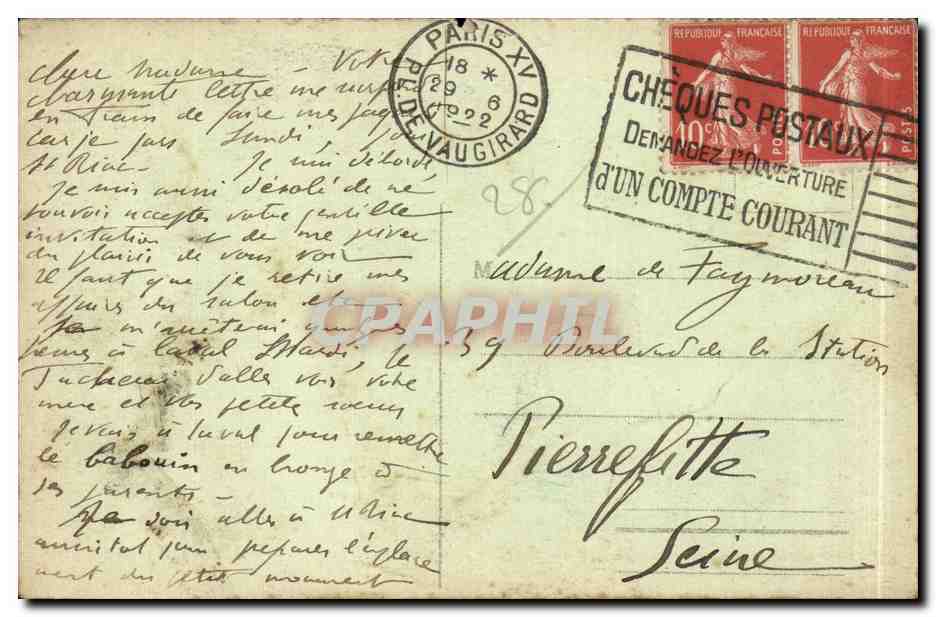 Chère Madame - Votre
charmante lettre me
en train de faire mes
car je pars Lundi, p
St Briac - Je suis débordé,
Je suis aussi désolé de ne
pouvoir accepter votre gentille
invitation et de me priver
du plaisir de vous voir
il faut que je retire mes
affaires du salon et
m'arrêterai quelques
heures à Laval Mardi, je
d'aller voir votre
mère et vos petites soeurs
je vais à Laval pour remettre
le babouin en bronze à
ses parents -
Je dois aller à St Briac
aussitot pour préparer l'emplace
ment du petit monument
PARIS XV
18 *
29 - 6
1922
PL. DE VAUGIRARD
REPUBLIQUE FRANÇAISE
10c
POSTES
REPUBLIQUE FRANÇAISE
POSTES
CHÈQUES POSTAUX
DEMANDEZ L'OUVERTURE
d'UN COMPTE COURANT
28
Madame de Faymoreau
39 Boulevard de la Station
Pierrefitte
Seine
CPAPHIL